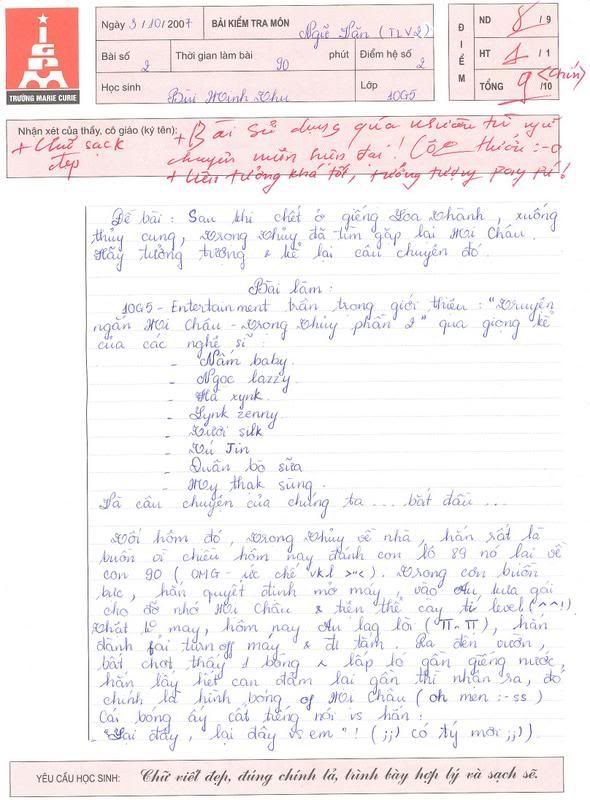 Ngày 3/10/2007 BÀI KIỂM TRA MÔN Ngữ Văn (TLV2)
Bài số 2 Thời gian làm bài 90 phút Điểm hệ số 2
Học sinh Bùi Minh Thu Lớp 10G5
TRƯỜNG MARIE CURIE
ĐIỂM
ND 8 / 9
HT 1 / 1
TỔNG 9 (chín) /10
Nhận xét của thầy, cô giáo (ký tên): + Bài sử dụng quá nhiều từ ngữ
+ Chữ sạch đẹp
chuyên môn hiện đại! (Cô thiếu :-o
+ Liên tưởng khá tốt, tưởng tượng pay pú!
Đề bài: Sau khi chết ở giếng Loa Thành, xuống
thủy cung, Trọng Thủy đã tìm gặp lại Mị Châu.
Hãy tưởng tượng & kể lại câu chuyện đó.
Bài làm:
10G5 - Entertainment trân trọng giới thiệu: "Truyện
ngắn Mị Châu - Trọng Thủy phần 2" qua giọng kể
của các nghệ sĩ:
- Nấm baby.
- Ngọc lazzy.
- Hà xynk.
- Lynk zenny.
- Tười silk
- Tú Jin
- Quân bò sữa
- My thak sùng.
Và câu chuyện của chúng ta ... bắt đầu ...
Tối hôm đó, Trọng Thủy về nhà, hắn rất là
buồn vì chiều hôm nay đánh con lô 89 nó lại về
con 90 (OMG - ức chế vkl >"<). Trong cơn buồn
bực, hắn quyết định mở máy, vào Au, lừa gái
cho đỡ nhớ Mị Châu & tiện thể cày tí level (^^!)
Nhất lè may, hôm nay Au lag lòi (π.π), hắn
đành fải turn off máy & đi tắm. Ra đến vườn,
bất chợt thấy 1 bóng ~ lấp ló gần giếng nước,
hắn lấy hết can đảm lại gần thì nhận ra, đó
chính là hình bóng of Mị Châu (oh men :-ss)
Cái bóng ấy cất tiếng nói vs hắn:
- "Lại đây, lại đây vs em"! (;;) có tý mời ;;))
YÊU CẦU HỌC SINH: Chữ viết đẹp, đúng chính tả, trình bày hợp lý và sạch sẽ.